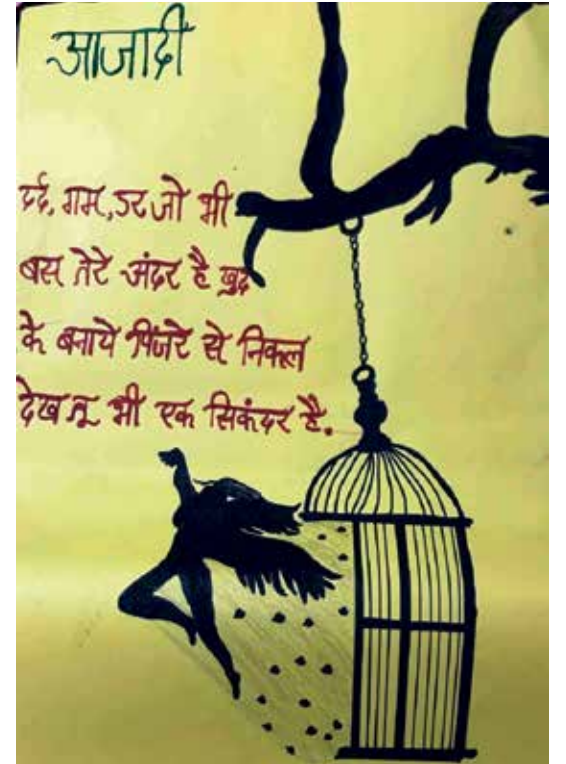 आजादी
दर्द, गम, डर जो भी
बस तेरे अंदर है खुद
के बनाये पिंजरे से निकल
देख तू भी एक सिकंदर है.